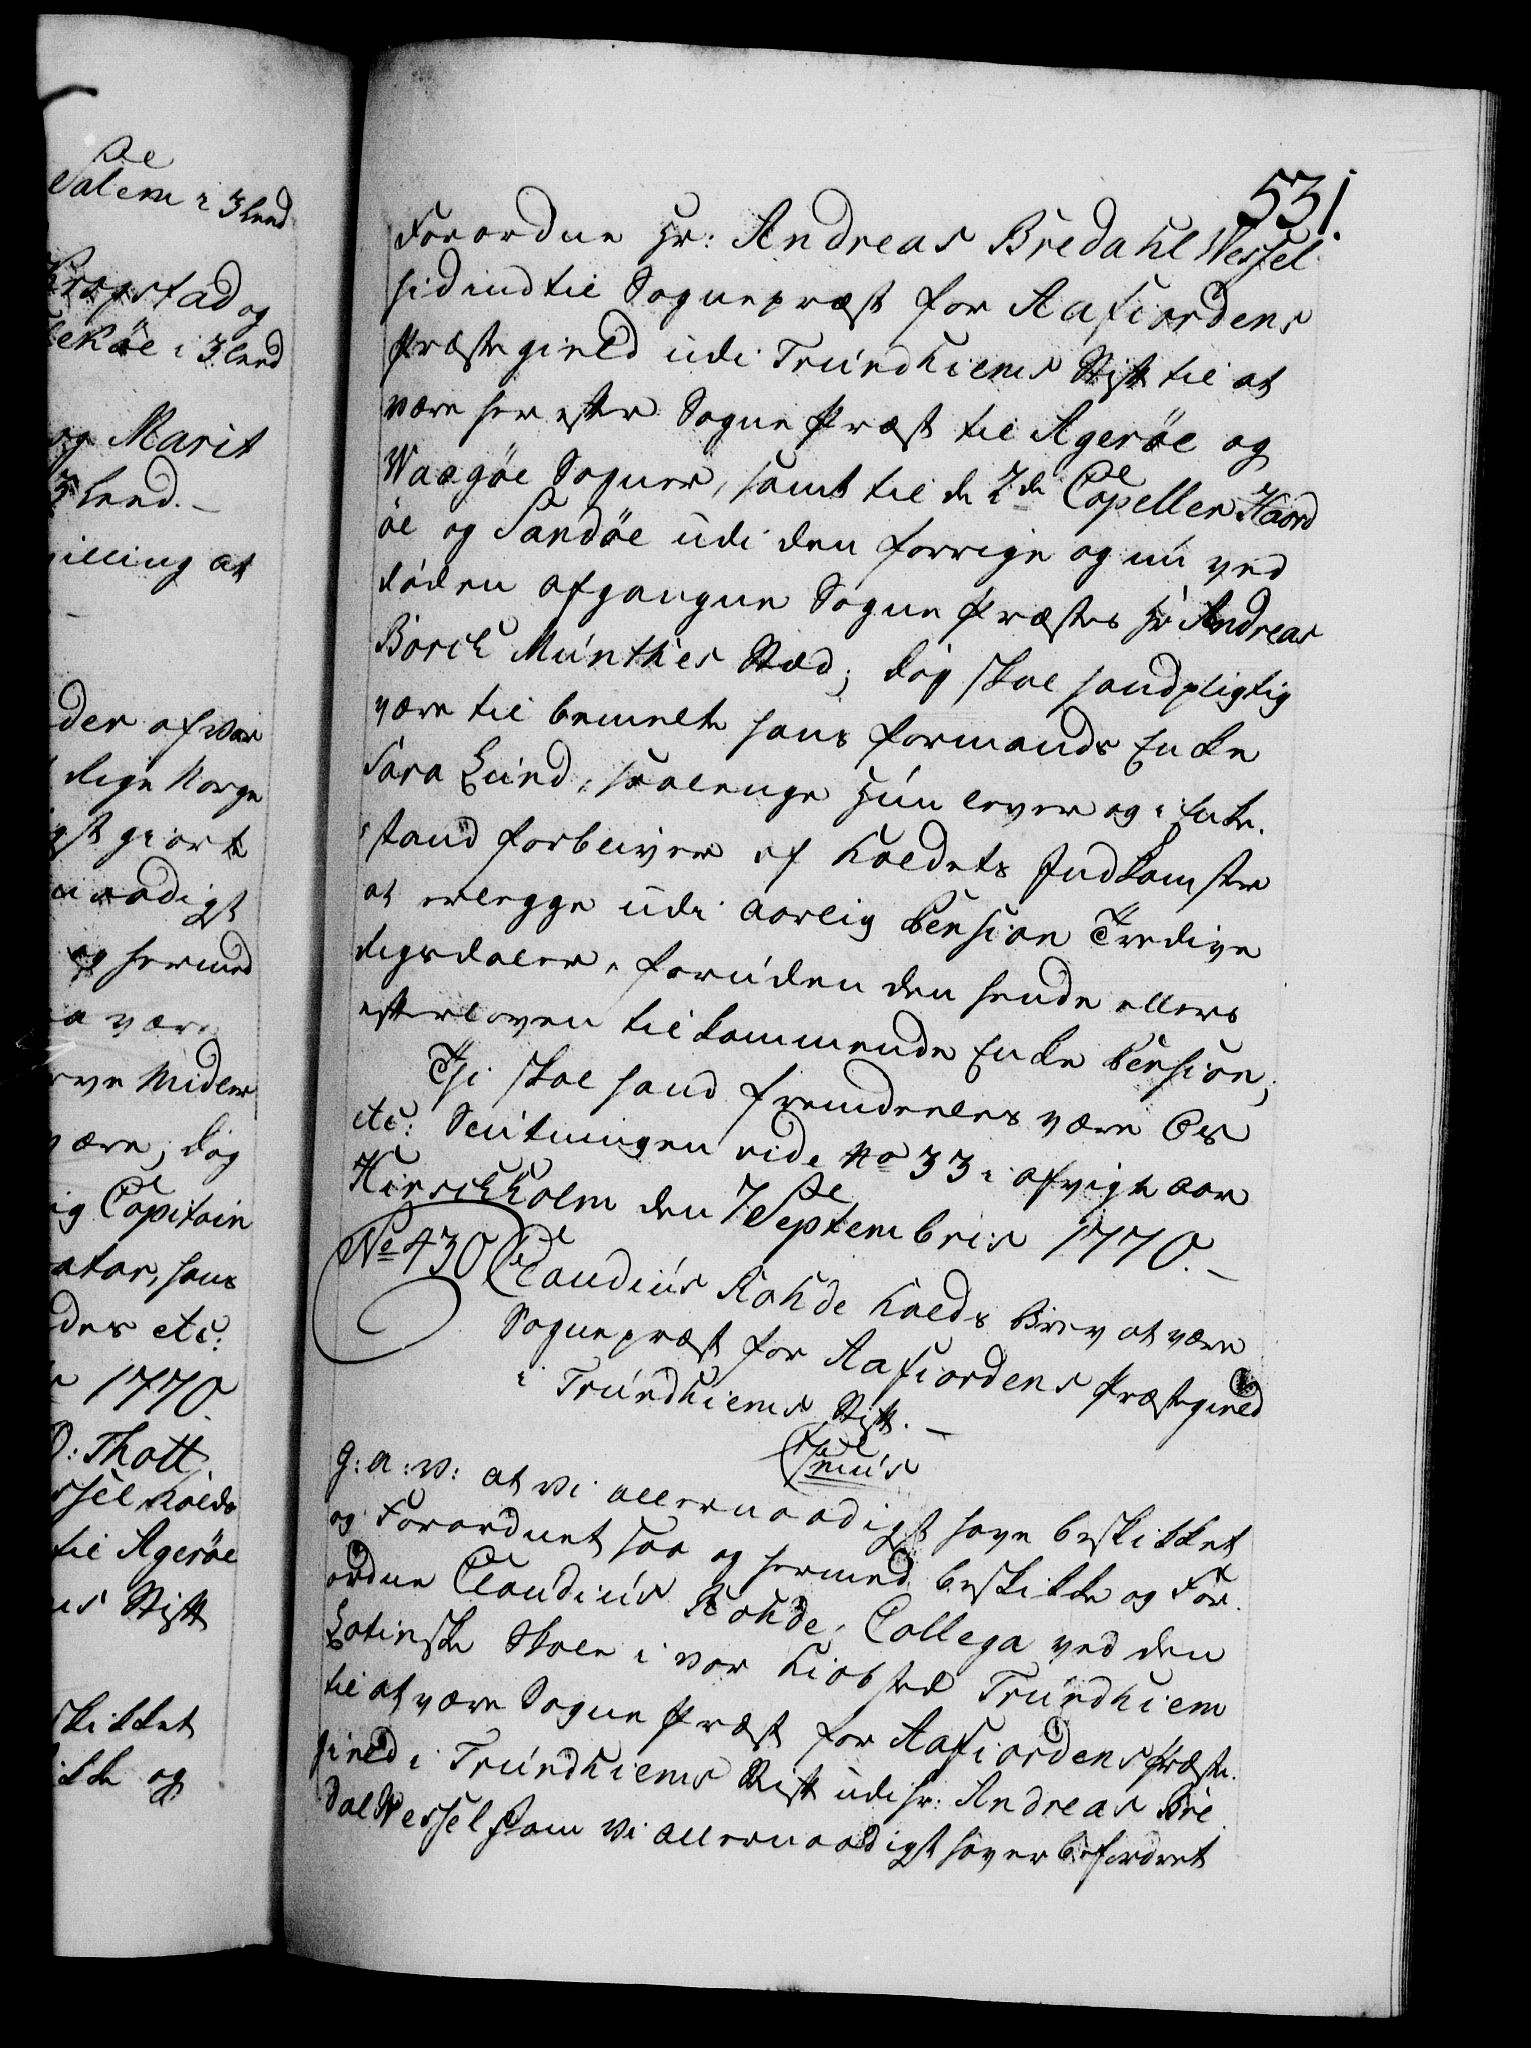 de
Salem i 3 lend
Kragstad og
lekøe i 3 lend
og Marit
3 lend.
illing at
der af vor
rige Norge
gst giort
naadigst
og hermed
a være
rve Midler
være, dog
ig Capitain
ator, hans
des etc:
1770
O: Thott
ssel Kalds
til Agerøe
ms Stift
skikket
ikke og
531.
Forordne Hr: Andreas Bredahl Wessel
hidindtil Sognepræst for Aafiordens
Præstegield udi Trundhiems Stift til at
være her efter Sogne Præst til Agerøe og
Waagøe Sogner, samt til de 2de Capeller Haard
øe og Sandøe udi den forrige og nu ved
døden afgangne Sogne Præstes Hr Andreas
Borch Munthes Stæd; dog skal hand pligtig
være til bemelte hans Formands Encke
Sara Lund, saalenge Hun lever og i Enke
stand forbliver af Kaldets Indkomster
at erlegge udi aarlig Pension Tredive
Rigsdaler, foruden den hende ellers
efterloven tilkommende Encke Pension;
Thi skal hand fremdeeles være Os
etc: Slutningen vide No 33 i afvigte aar
Hirschholm den 7 Septembris 1770.
No 430 Claudius Rohde Kalds Brev at være
Sognepræst for Aafiordens Præstegield
i Trundhiems Stift.
G: A: V: at Vi allernaadigst have beskikket
og Forordnet saa og hermed beskikke og For
ordne Claudius Rohde, Collega ved den
Latinske Skole i vor Kiøbsted Trundhiem
til at være Sogne Præst for Aafiordens Præste
gield i Trundhiems Stift udi Hr: Andreas Bre
dal Wessel som Vi allernaadigst haver befordret